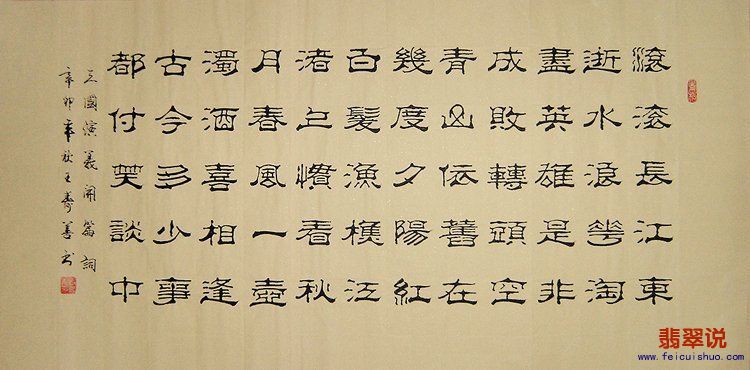 滾滾長江東
逝水浪花淘
盡英雄是非
成敗轉頭空
青山依舊在
幾度夕陽紅
白髮漁樵江
渚上慣看秋
月春風一壺
濁酒喜相逢
古今多少事
都付笑談中
三國演義開篇詞
辛卯年秋王壽善书
翡翠说
www.feicuishuo.com